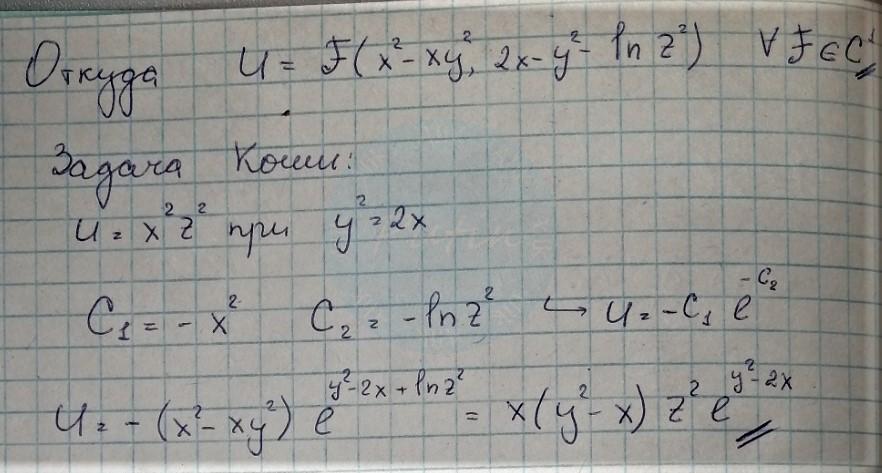 Откуда U = F(x² - xy², 2x - y² - ln z²) ∀ F ∈ C¹
Задача Коши:
U = x² z² при y² = 2x
C₁ = - x² C₂ = - ln z² ↪ U = - C₁ e^{-C₂}
U = - (x² - xy²) e^{y² - 2x + ln z²} = x(y² - x) z² e^{y² - 2x}